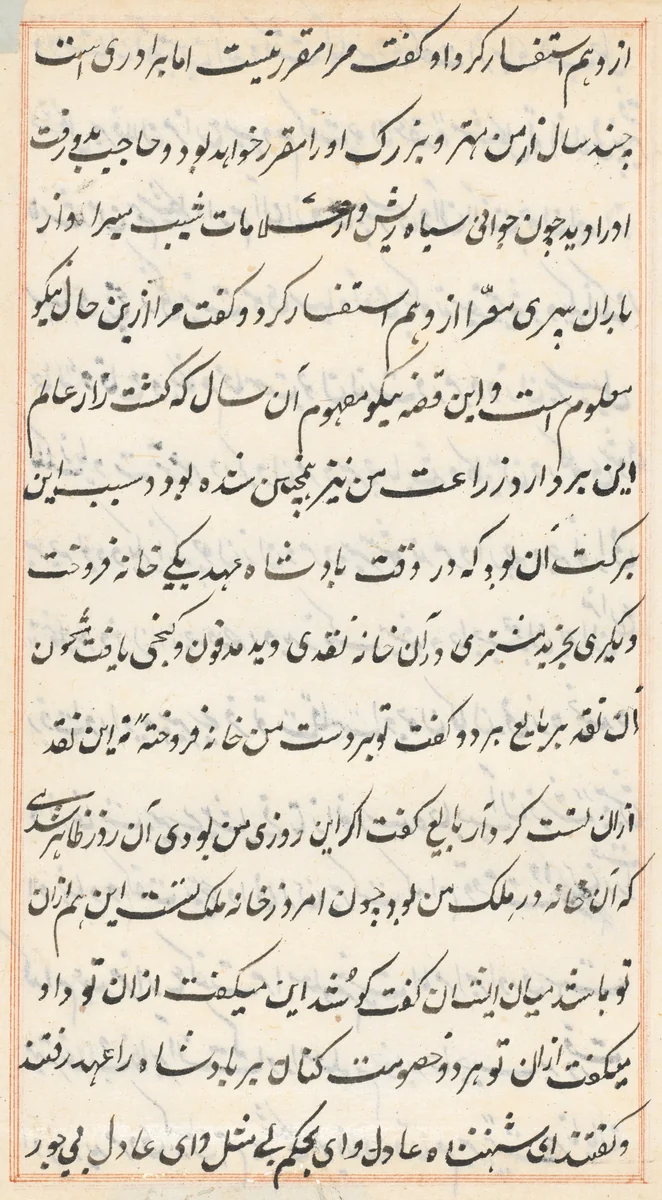 از وهم استفسار کرد او کفت مرا مقرر نیست اما برادری است
چند سال از من مهتر و بزرک اورا مقرر خواهد بود و حاجب بدو رفت
اورا دید چون جوانی سیاه ریش و از علامات شیب مبرا و از
باران پیری معرّا از وهم استفسار کرد و کفت مرا ازین حال نیکو
معلوم است و این قصه نیکو مفهوم آن سال که کشت زار عالم
این بر دارد زراعت من نیز همچنین شده بود و سبب این
برکت آن بود که در وقت بادشاه عهد یکی خانه فروخت
دیکری بخرید مشتری در آن خانه نقدی دید مدفون و کنجی یافت مشحون
آن نقد بر بایع برد و کفت تو بر دست من خانه فروختهٔ نه این نقد
ازان تست کرد آر بایع کفت اکر این روزی من بودی آن روز ظاهر شدی
که آن خانه در ملک من بود چون امروز خانه ملک تست این هم ازان
تو باشد میان ایشان کفت کو شد این میکفت ازان تو و او
میکفت ازان تو هر دو خصومت کنان بر بادشاه را عهد رفتند
و کفتند ای شهنشاه عادل و ای بحکم بی مثل و ای عادل بی جور